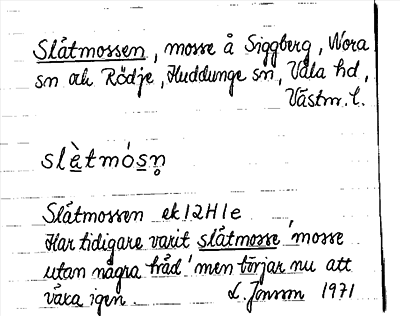 Slåtmossen, mosse å Siggberg, Nora
sn och Rödje, Huddunge sn, Våla hd,
Västm. l.
slètmósn̥
Slåtmossen ek 12H1e
Har tidigare varit slåtmosse 'mosse
utan några träd' men börjar nu att
växa igen. L. Jonsson 1971